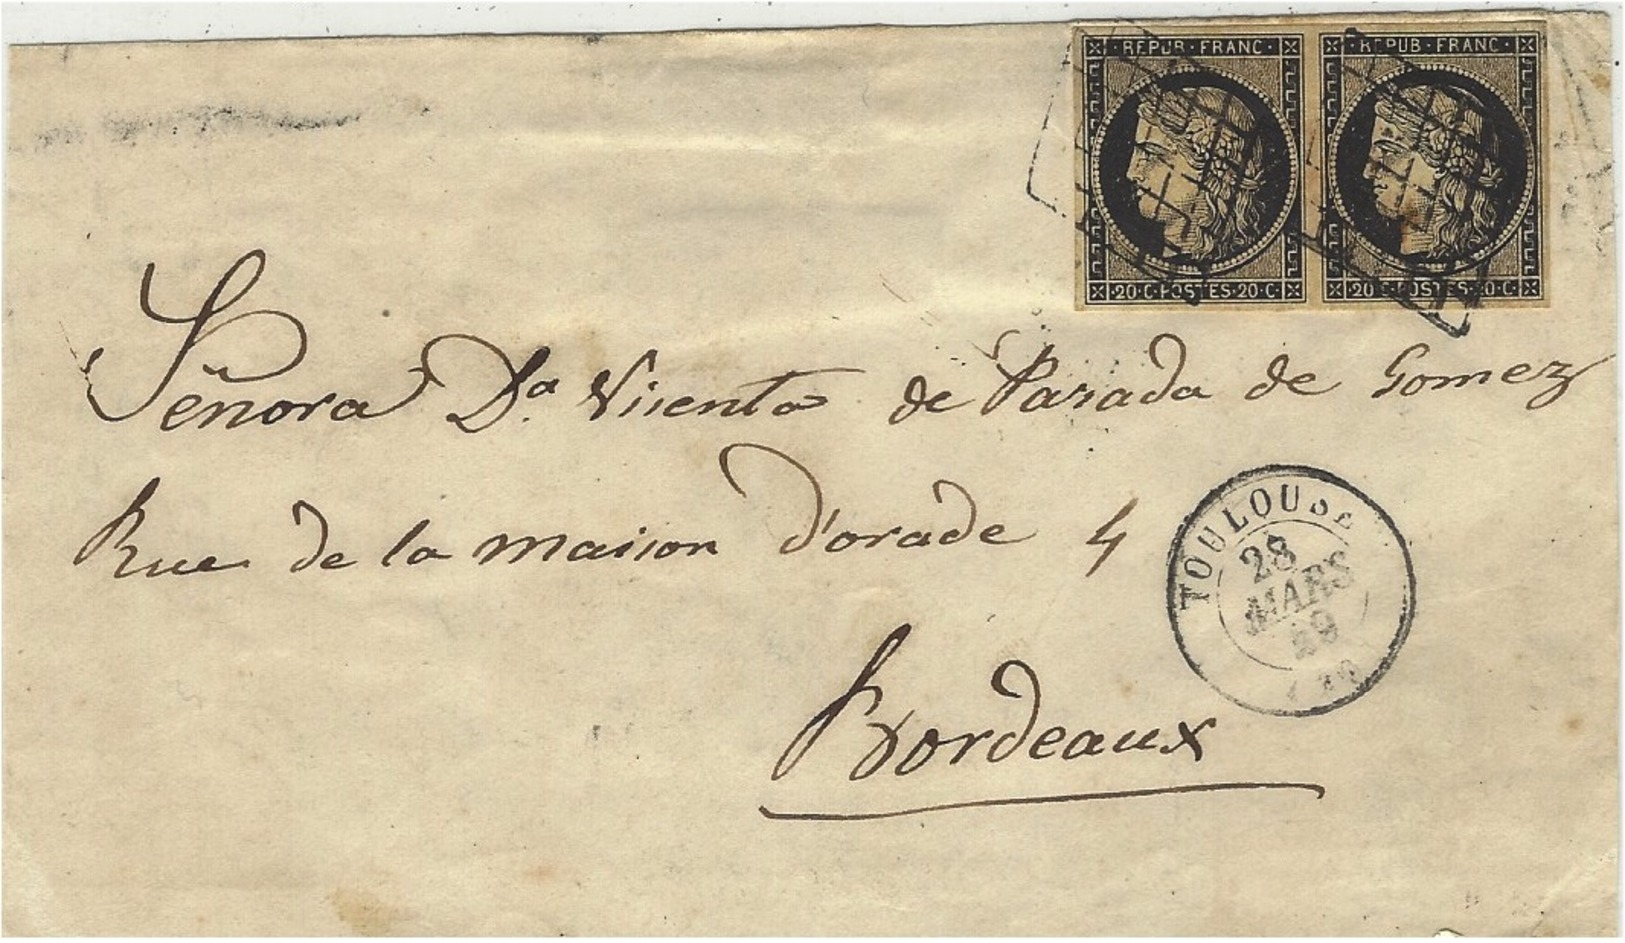 REPUB · FRANC · REPUB · FRANC ·
20 · C · POSTES · 20 · C · 20 · C · POSTES · 20 · C ·
Señora Dª Visenta de Parada de Gomez
Rue de la maison d'orade 4
TOULOUSE
28
MARS
49
Bordeaux